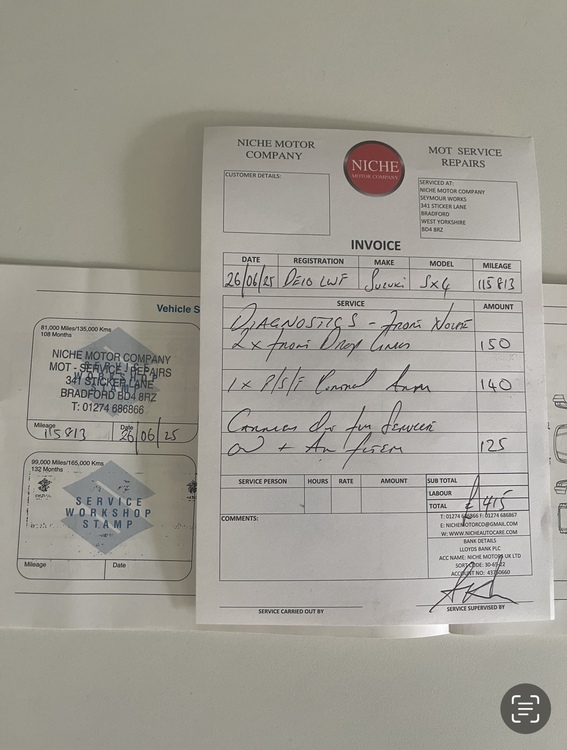 NICHE MOTOR
COMPANY
NICHE
MOTOR COMPANY
MOT SERVICE
REPAIRS
CUSTOMER DETAILS:
SERVICED AT:
NICHE MOTOR COMPANY
SEYMOUR WORKS
341 STICKER LANE
BRADFORD
WEST YORKSHIRE
BD4 8RZ
INVOICE
DATE REGISTRATION MAKE MODEL MILEAGE
26/06/25 DE10 LWF Suzuki SX4 115813
SERVICE AMOUNT
DIAGNOSTICS - FRONT NOISE
2x FRONT DROP LINKS 150
1x P/S/F CONTROL ARM 140
CARRIED OUT FULL SERVICE
+ 125
SERVICE PERSON HOURS RATE AMOUNT SUB TOTAL
LABOUR
TOTAL £415
COMMENTS:
F: 01274 686867
E: NICHEMOTORCO@GMAIL.COM
W: WWW.NICHEAUTOCARE.COM
BANK DETAILS
LLOYDS BANK PLC
ACC NAME: NICHE MOTORS UK LTD
SORT CODE:
ACCOUNT NO:
SERVICE CARRIED OUT BY
SERVICE SUPERVISED BY
Vehicle S
81,000 Miles/135,000 Kms
108 Months
NICHE MOTOR COMPANY
MOT - SERVICE - REPAIRS
341 STICKER LANE
BRADFORD BD4 8RZ
T: 01274 686866
Mileage Date
115813 26/06/25
99,000 Miles/165,000 Kms
132 Months
SERVICE
WORKSHOP
STAMP
Mileage Date